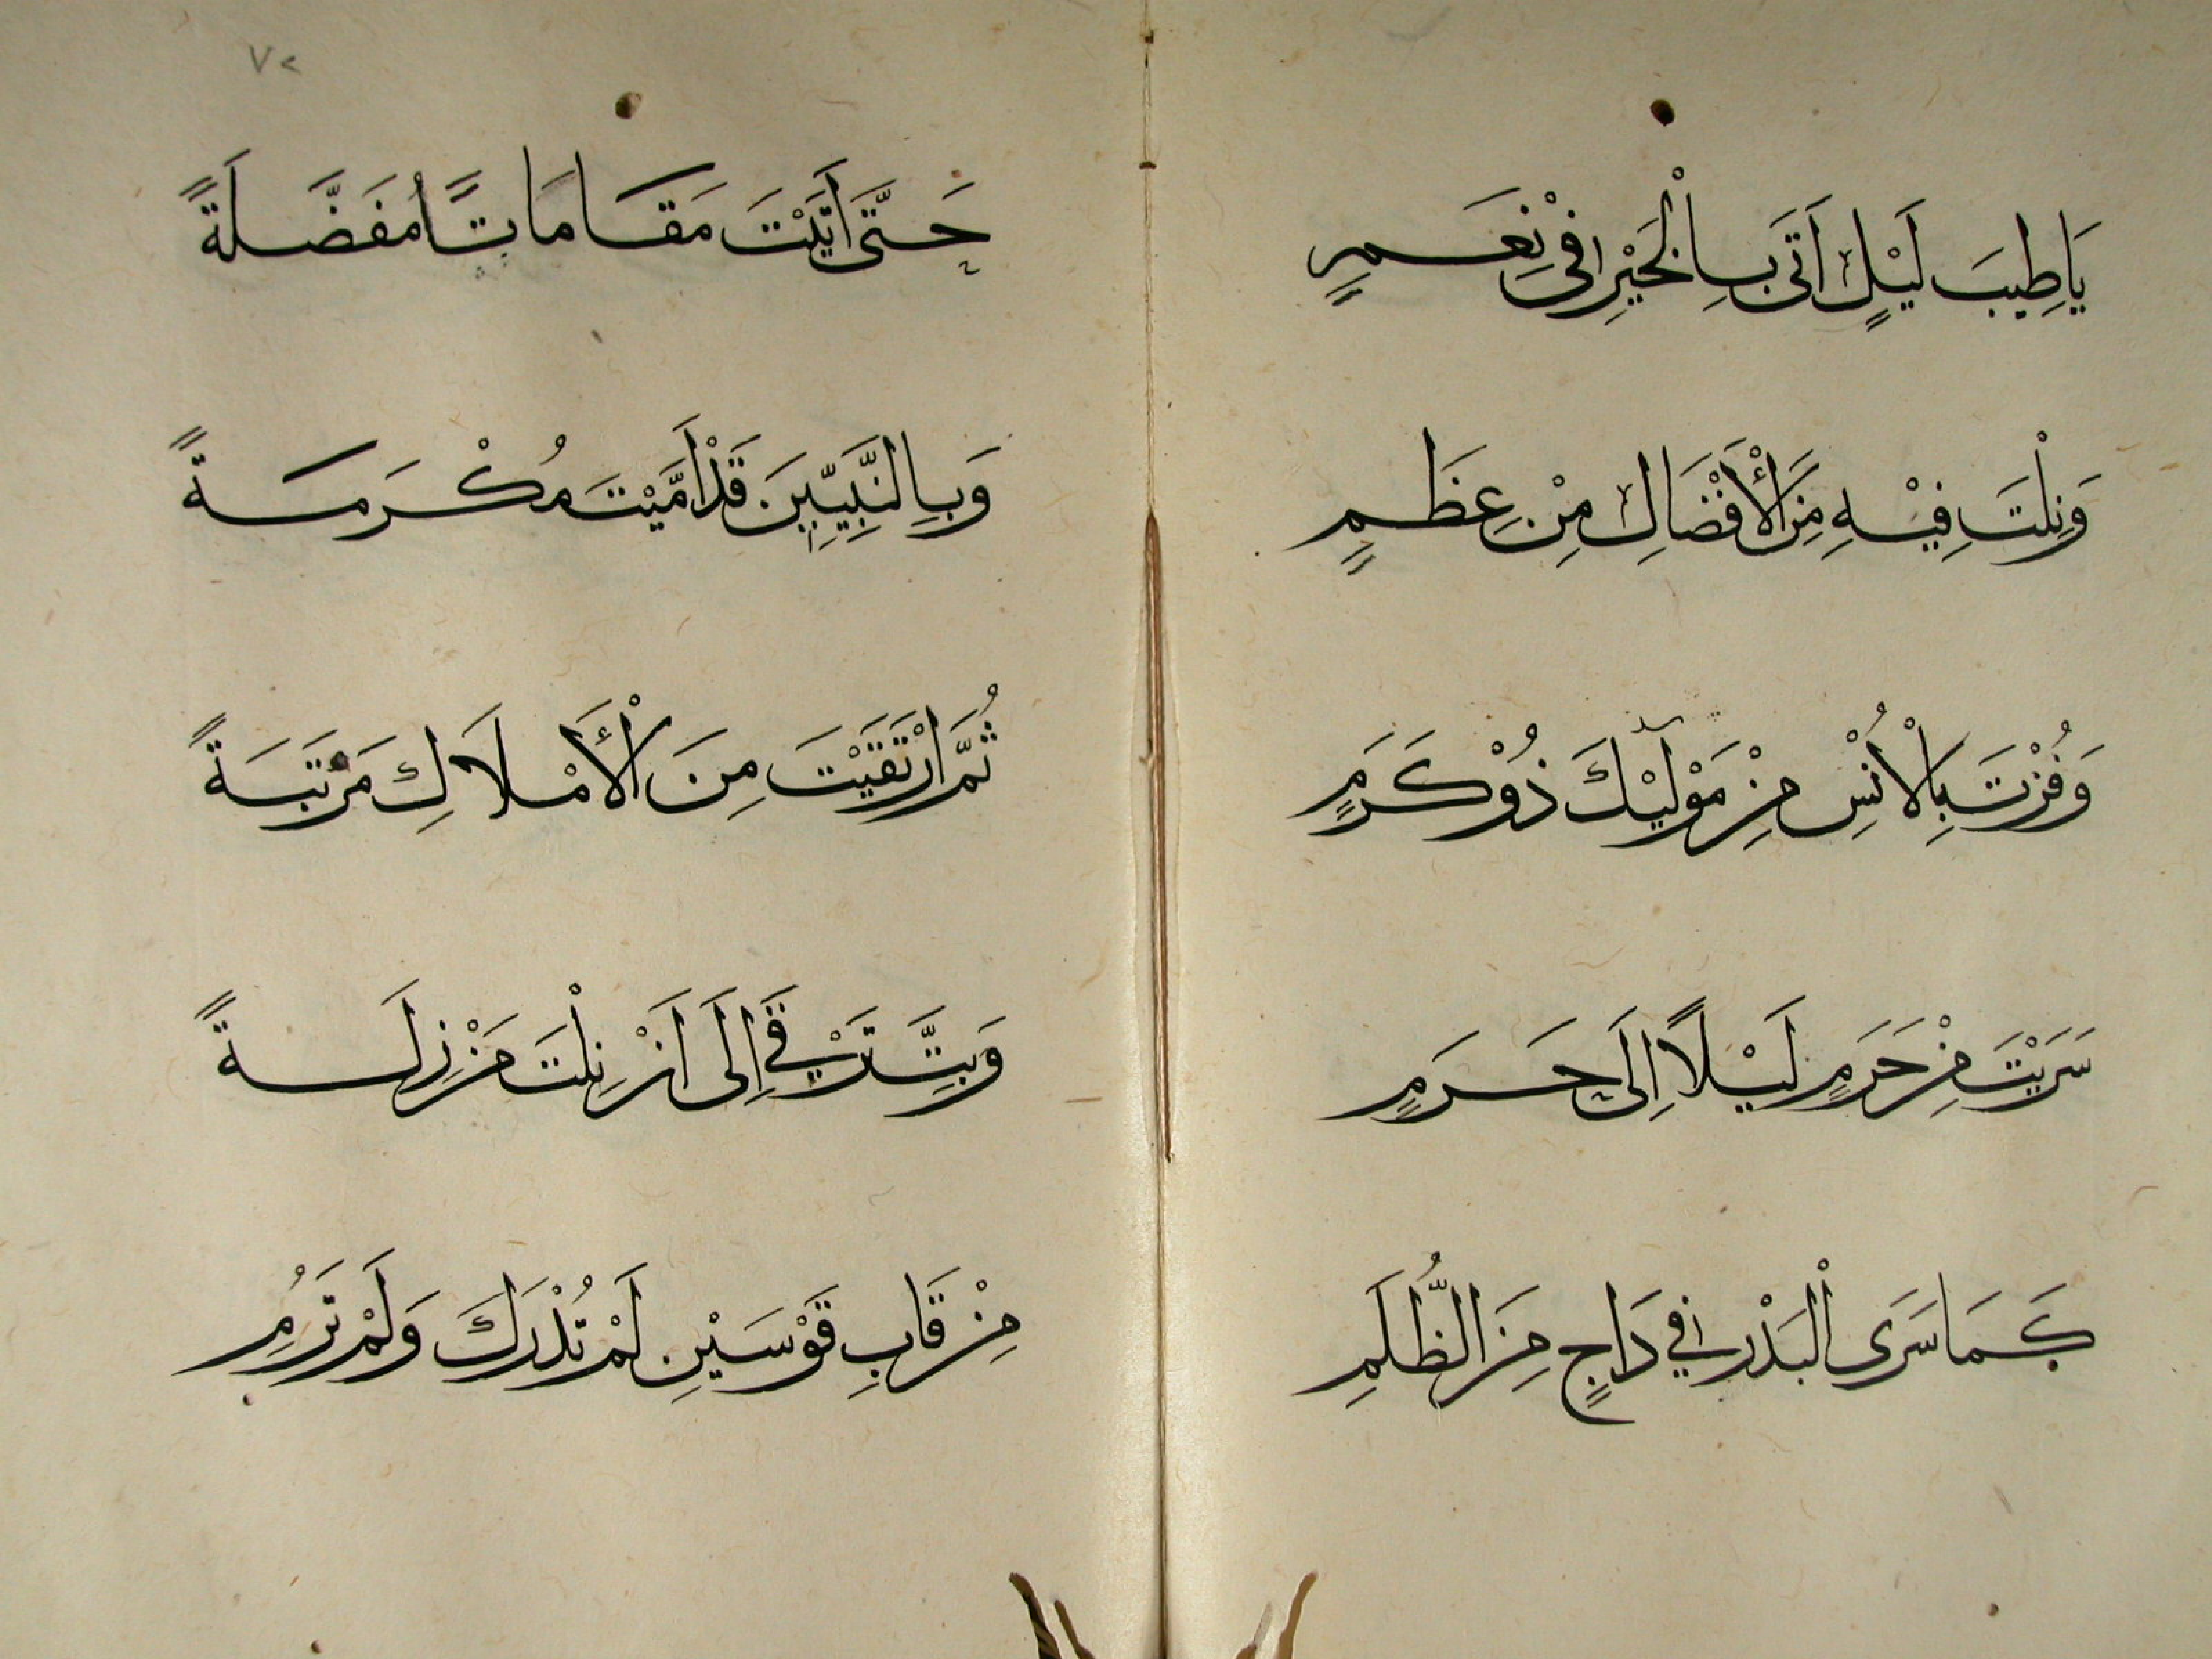 يَاطِيبَ لَيْلٍ اَتَى بِالْخَيْرِ فِيْ نِعَمٍ
وَنِلْتَ فِيْهِ مِنَ الْأَفْضَالِ مِنْ عِظَمٍ
وَفُزْتَ بِالْاُنْسِ مِنْ مَوْلَيْكَ ذُوْكَرَمٍ
سَرَيْتَ مِنْ حَرَمٍ لَيْلاً اِلَى حَرَمٍ
كَمَا سَرَى الْبَدْرُ فِي دَاجٍ مِنَ الظُّلَمِ
٧٢
حَتَّى اَتَيْتَ مَقَامَاتًا مُفَضَّلَةً
وَبِالنَّبِيِّيْنَ قَدْ اَمَّيْتَ مُكْرَمَةً
ثُمَّ ارْتَقَيْتَ مِنَ الْأَمْلَاكِ مَرْتَبَةً
وَبِتَّ تَرْقَى اِلَى اَنْ نِلْتَ مَنْزِلَةً
مِنْ قَابِ قَوْسَيْنِ لَمْ تُدْرَكْ وَلَمْ تَرُمِ